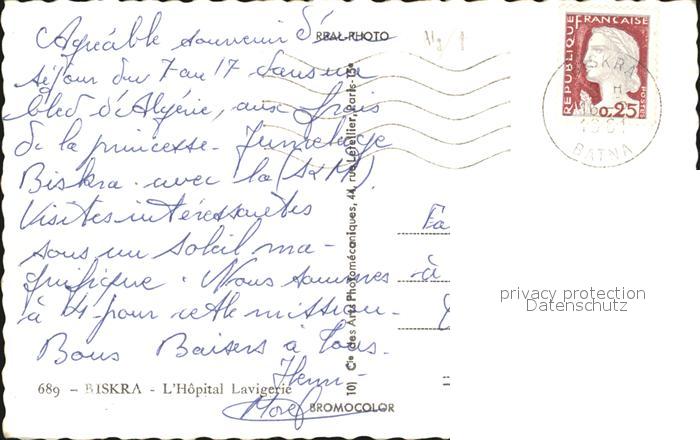 Agréable souvenir d'un
séjour du 7 au 17 dans un
bled d'Algérie, aux frais
de la princesse. Jumelage
Biskra avec la
Visites intéressantes
sous un soleil ma-
gnifique. Nous sommes
à 4 pour cette mission.
Bons Baisers à Tous.
Henri
689 - BISKRA - L'Hôpital Lavigerie
REAL-PHOTO
10) Cie des Arts Photomécaniques, 44, rue Letellier, Paris-15e
BROMOCOLOR
à
REPUBLIQUE FRANÇAISE
0,25
BISKRA
1961
BATNA
privacy protection
Datenschutz